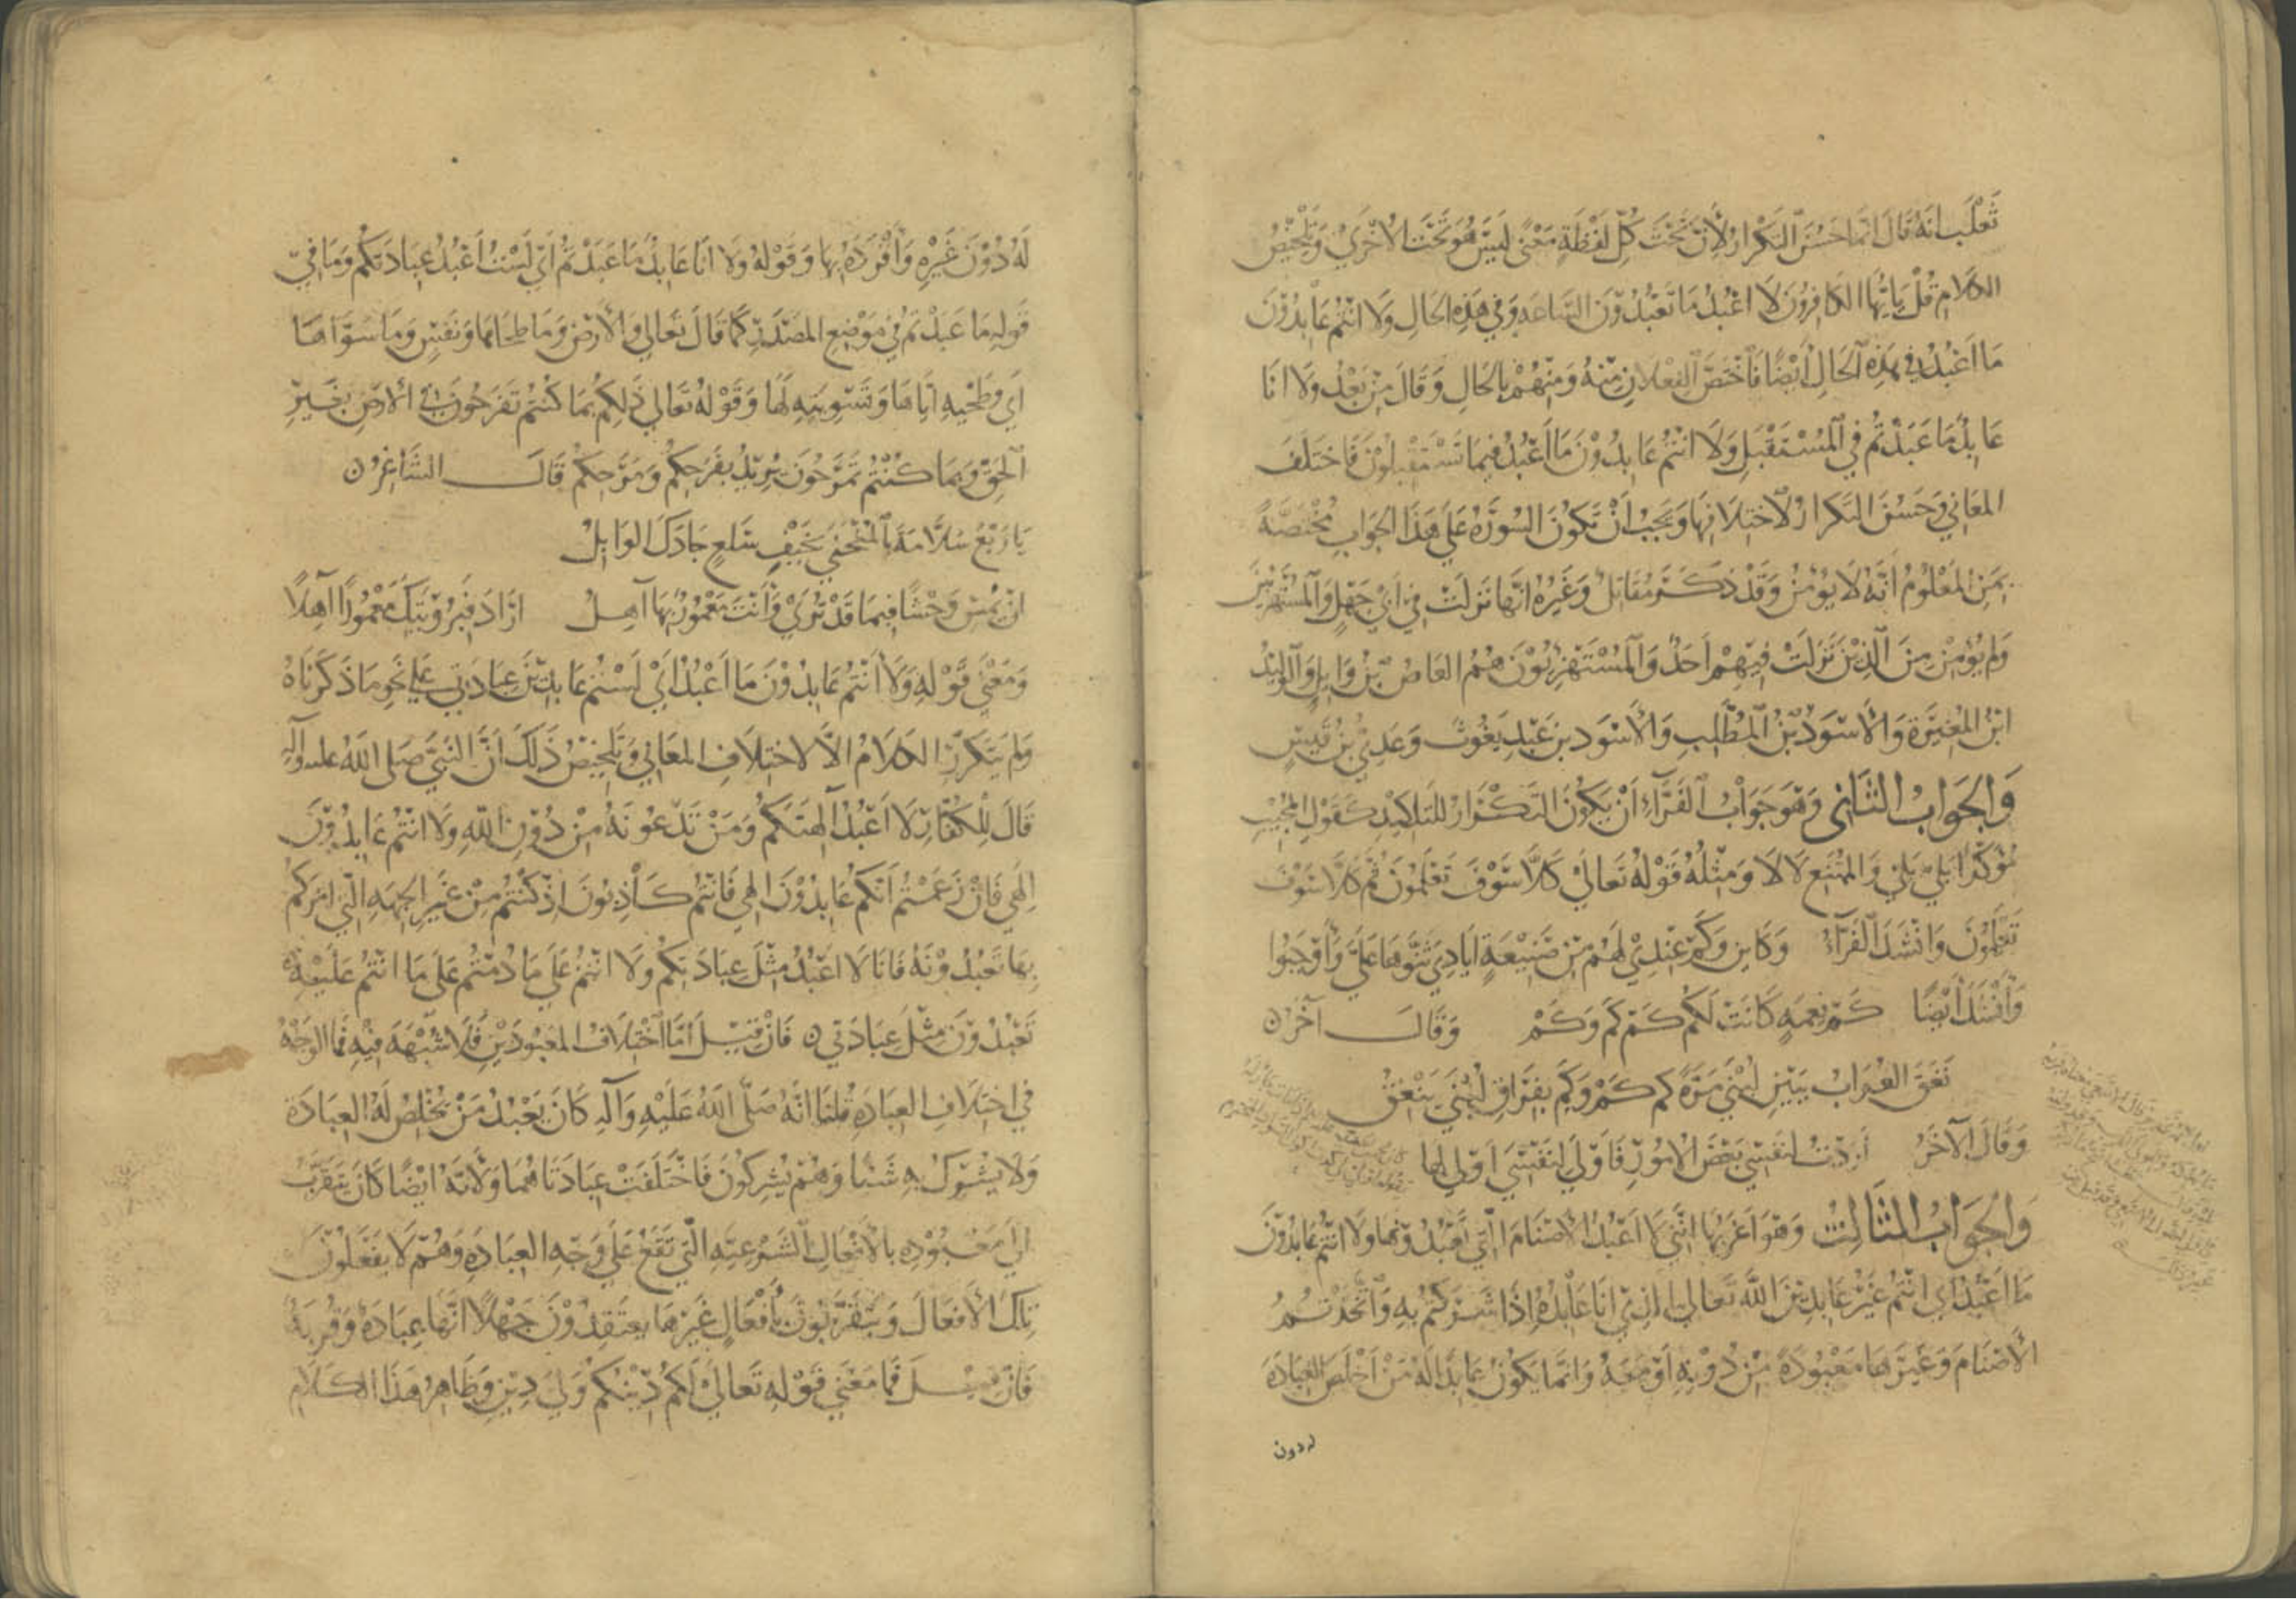 ثَعْلَب انَّهُ قَالَ انَّما حَسُنَ التَّكْرارُ لأَنَّ تَحْتَ كُلِّ لَفْظَةٍ مَعْنًى لَيْسَ هُوَ تَحْتَ الاُخْرَى وَتَلْخِيْصُ
الكلامِ قُلْ يايُّهَا الكَافِرُونَ لَا اعْبُدُ مَا تَعْبُدُوْنَ السَّاعَةِ وَفِي هَذِهِ الحَالِ وَلَا انْتُمْ عَابِدُوْنَ
مَا اَعْبُدُ فِي هَذِهِ الحَالِ أَيْضًا فَاخْتَصَّ الفِعْلَانِ مِنْهُ وَمِنْهُمْ بِالحَالِ وَقَالَ مِنْ بَعْدُ وَلَا انَا
عَابِدٌ مَا عَبَدْتُمْ فِي المُسْتَقْبَلِ وَلَا انْتُمْ عَابِدُوْنَ مَا اَعْبُدُ فِيمَا تَسْتَقْبِلُوْنَ فَاخْتَلَفَ
المَعَانِي وَحَسُنَ التَّكْرارُ لِاخْتِلَافِهَا وَيَجِبُ اَنْ تَكُونَ السُّورَةُ عَلَى هَذَا الجَوَابِ مُخْتَصَّةً
بِمَنِ المَعْلُومُ أَنَّهُ لَا يُؤْمِنُ وَقَدْ ذَكَرَ مُقَاتِلٌ وَغَيْرُهُ انَّهَا نَزَلَتْ فِي اَبِي جَهْلٍ وَالمُسْتَهْزِئينَ
وَلَم يُؤْمِنْ مِنَ الَّذِيْنَ نَزَلَتْ فِيْهِمْ اَحَدٌ وَالمُسْتَهْزِئُوْنَ هُمُ العَاصُ بْنُ وَايِلٍ وَالوَلِيْدُ
ابْنُ المُغِيرَةِ وَالأَسْوَدُ بْنُ المُطَّلِبِ وَالأَسْوَد بن عَبْدِ يَغُوثَ وَعَدِيُّ بْنُ قَيْسٍ
وَالجَوَابُ الثَّانِي وَهُوَ جَوَابُ الفَرَّآءِ اَنْ يَكُونَ التَّكْرَارُ لِلتَاكِيْدِ كَقَوْلِ المُجِيْبِ
مُؤَكِّدًا بَلِى بَلِى وَالمُمْتَنِعِ لَا لَا وَمِثْلُهُ قَوْلُهُ تَعَالَى كَلَّا سَوْفَ تَعْلَمُونَ ثُمَّ كَلَّا سَوْفَ
تَعْلَمُوْنَ وَانْشَدَ الفَرَّآءُ وَكَاين وَكَمْ عِنْدِي لَهُمْ مِنْ صَنِيْعَةٍ اَيَادِيَ ثَنَّوْهَا عَلَيَّ وَأَوْجَبُوا
وَاَنْشَدَ اَيْضًا كَمْ نِعْمَهٍ كَانَتْ لَكُمْ كَمْ كَمْ وَكَمْ وَقَالَ آخَرُ
نَعَقَ الغُرَابُ بِبَيْنِ لُبْنَى مَرَّةً كَم كَمْ وَكَمْ بِفِرَاقِ لُبْنَى يَنْعَقُ
وَقَالَ الآخَرُ أَرَدْتُ لِنَفْسِي بَعْضَ الأُمُورِ فَأَوْلَى لِنَفْسِيَ اَوْلَى لها
وَالجَوَابُ الثَّالِثُ وَهُوَ اَغْرَبُهَا انَّنِي لَا اَعْبُدُ الأَصْنَامَ الَّتِي تَعْبُدُوْنَهَا وَلَا انْتُمْ عَابِدُوْنَ
مَا اَعْبُدُ اَي انْتُمْ غَيْرُ عَابِدِيْنَ اللهَ تَعَالَى الَّذِي انَا عَابِدُهُ اِذَا شَرَكْتُمْ بِهِ وَاتَّخَذْتُمُ
الأَصْنَامَ وَغَيْرَهَا مَعْبُودَةً مِنْ دُوْنِهِ اَوْ مَعَهُ وَانَّمَا يَكُونُ عَابِدًا لَهُ مَنْ اَخْلَصَ العِبَادَةَ
له دون
لَهُ دُوْنَ غَيْرِهِ وَأَفْرَدَهُ بِهَا وَقَوْلُهُ وَلَا اَنَا عَابِدٌ مَا عَبَدْتُمْ اَيْ لَسْتُ اَعْبُدُ عِبَادَتَكُمْ وَمَا فِي
قَوْلِهِ مَا عَبَدْتُمْ فِي مَوْضِعِ المَصْدَرِ كَمَا قَالَ تَعَالَى وَالأَرْضِ وَمَا طَحَاهَا وَنَفْسٍ وَمَا سَوَّاهَا
اَي وَطَحْيِهِ ايَّاهَا وَتَسْوِيَتِهِ لَهَا وَقَوْلُهُ تَعَالَى ذَلِكُمْ بِمَا كُنْتُمْ تَفْرَحُونَ فِي الأَرْضِ بِغَيْرِ
الحَقِّ وَبِمَا كُنْتُمْ تَمْرَحُونَ يُرِيْدُ بِفَرَحِكُمْ وَمَرَحِكُمْ قَالَ الشَّاعِرُ
يَا رَبْعَ سَلَّامَةَ بِالمُنْحَنَى بِخَيْفِ سَلْعٍ جَادَكَ الوَابِلُ
ان تُمْسِ وَحْشًا فِيمَا قَدْ تُرَى وَأَنْتَ مَعْمُورٌ بِهَا آهِلُ ارَادَ فَبِرُؤْيَتِكَ مَعْمُورًا آهِلًا
وَمَعْنَى قَوْلِهِ وَلَا أَنْتُمْ عَابِدُوْنَ مَا اَعْبُدُ اَيْ لَسْتُمْ عَابِدِيْنَ عِبَادَتِي عَلَى نَحْوِ مَا ذَكَرْنَاهُ
وَلَم يَتَكَرَّرِ الكَلَامُ الَّا لِاخْتِلَافِ المَعَانِي وَتَلْخِيْصُ ذَلِكَ أَنَّ النَّبِيَّ صَلَى اللهُ عليه وآلِهِ
قَالَ لِلْكُفَّارِ لَا اَعْبُدُ آلِهَتَكُمْ وَمَنْ تَدْعُونَهُ مِنْ دُوْنِ اللهِ وَلَا انْتُمْ عَابِدُوْنَ
اِلَهِي فَانْ زَعَمْتُمْ اَنَّكُمْ عَابِدُوْنَ الهِي فَانْتُمْ كَاذِبُونَ اذْ كُنْتُمْ مِنْ غَيْرِ الجِهَةِ الَّتِي امَرَكُمْ
بِهَا تَعْبُدُوْنَهُ فَانَا لَا اَعْبُدُ مِثْلَ عِبَادَتِكُمْ وَلَا انْتُمْ عَلَى مَا دُمْتُمْ عَلَى مَا انْتُمْ عَلَيْهِ
تَعْبُدُوْنَ مِثْلَ عِبَادَتِي فَانْ قِيْلَ اَمَّا اخْتِلَافُ المَعْبُودَيْنِ فَلَا شُبْهَةَ فِيْهِ فَمَا الوَجْهُ
فِي اخْتِلَافِ العِبَادَةِ قُلْنَا انَّهُ صَلَّى اللهُ عَلَيْهِ وَآلِهِ كَانَ يَعْبُدُ مَنْ يُخْلِصُ لَهُ العِبَادَةَ
وَلَا يُشْرِكُ بِهِ شَيْئًا وَهُمْ يُشْرِكُونَ فَاخْتَلَفَتْ عِبَادَتَاهُمَا وَلِأَنَّهُ اَيْضًا كَانَ يَتَقَرَّبُ
اِلَى مَعْبُوْدِهِ بالأَفْعَالِ الشَّرْعِيَّةِ الَّتِي تَقَعُ عَلَى وَجْهِ العِبَادَةِ وَهُمْ لَا يَفْعَلُوْنَ
تِلْكَ الأَفْعَالَ وَيَتَقَرَّبُونَ بِأَفْعَالٍ غَيْرِهَا يَعْتَقِدُوْنَ جَهْلًا اَنَّهَا عِبَادَةٌ وَقُرْبَةٌ
فَانْ قِيْلَ فَمَا مَعْنَى قَوْلِهِ تَعَالَى لَكُمْ دِيْنُكُمْ وَلِيَ دِيْنِ وَظَاهِرُ هَذَا الكَلَامِ